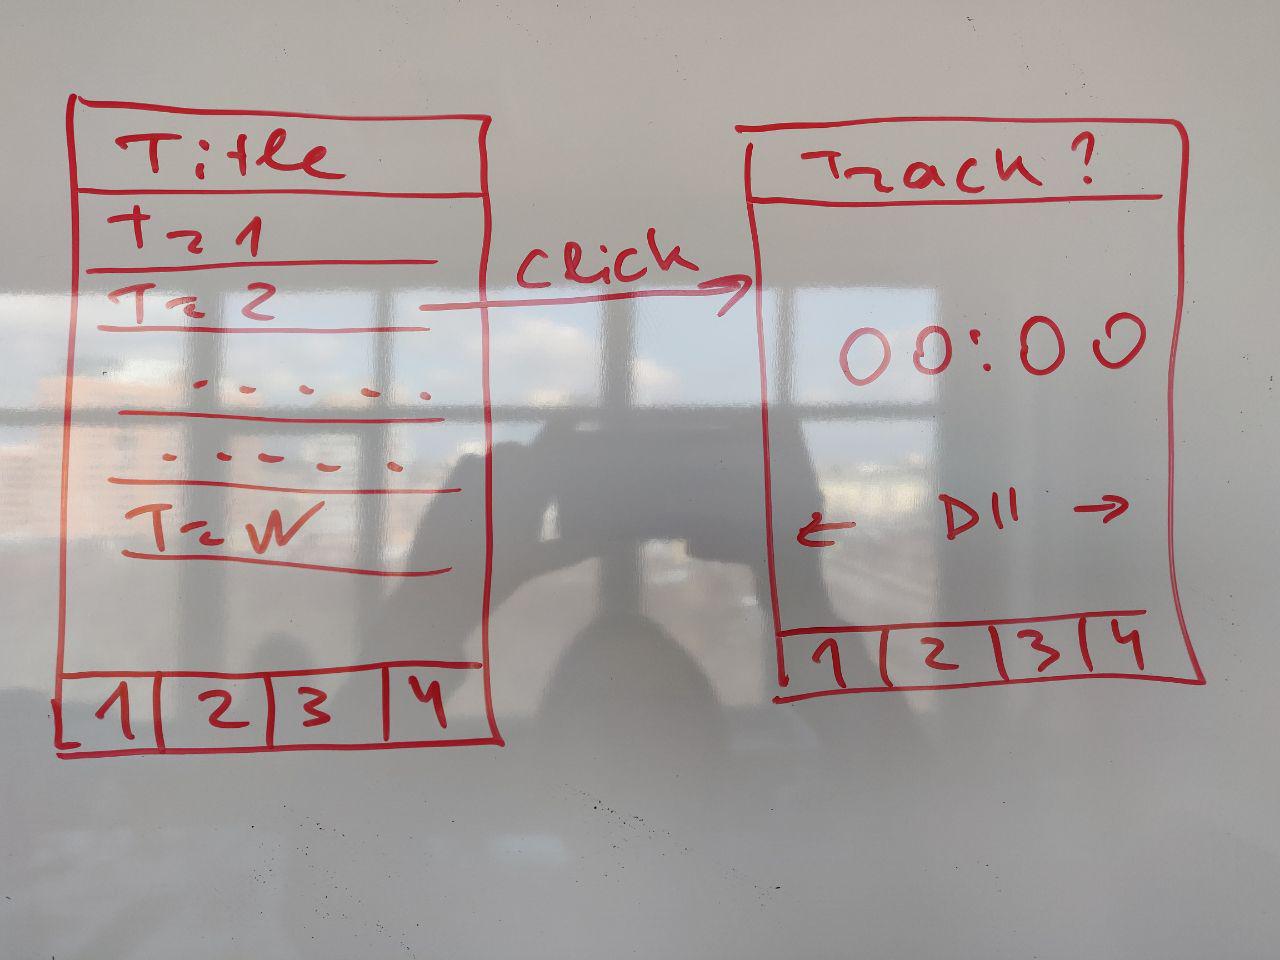 Title
Tr 1
Tr 2
.....
.....
Tr N
1 2 3 4
click
Track ?
00:00
← ▷|| →
1 2 3 4